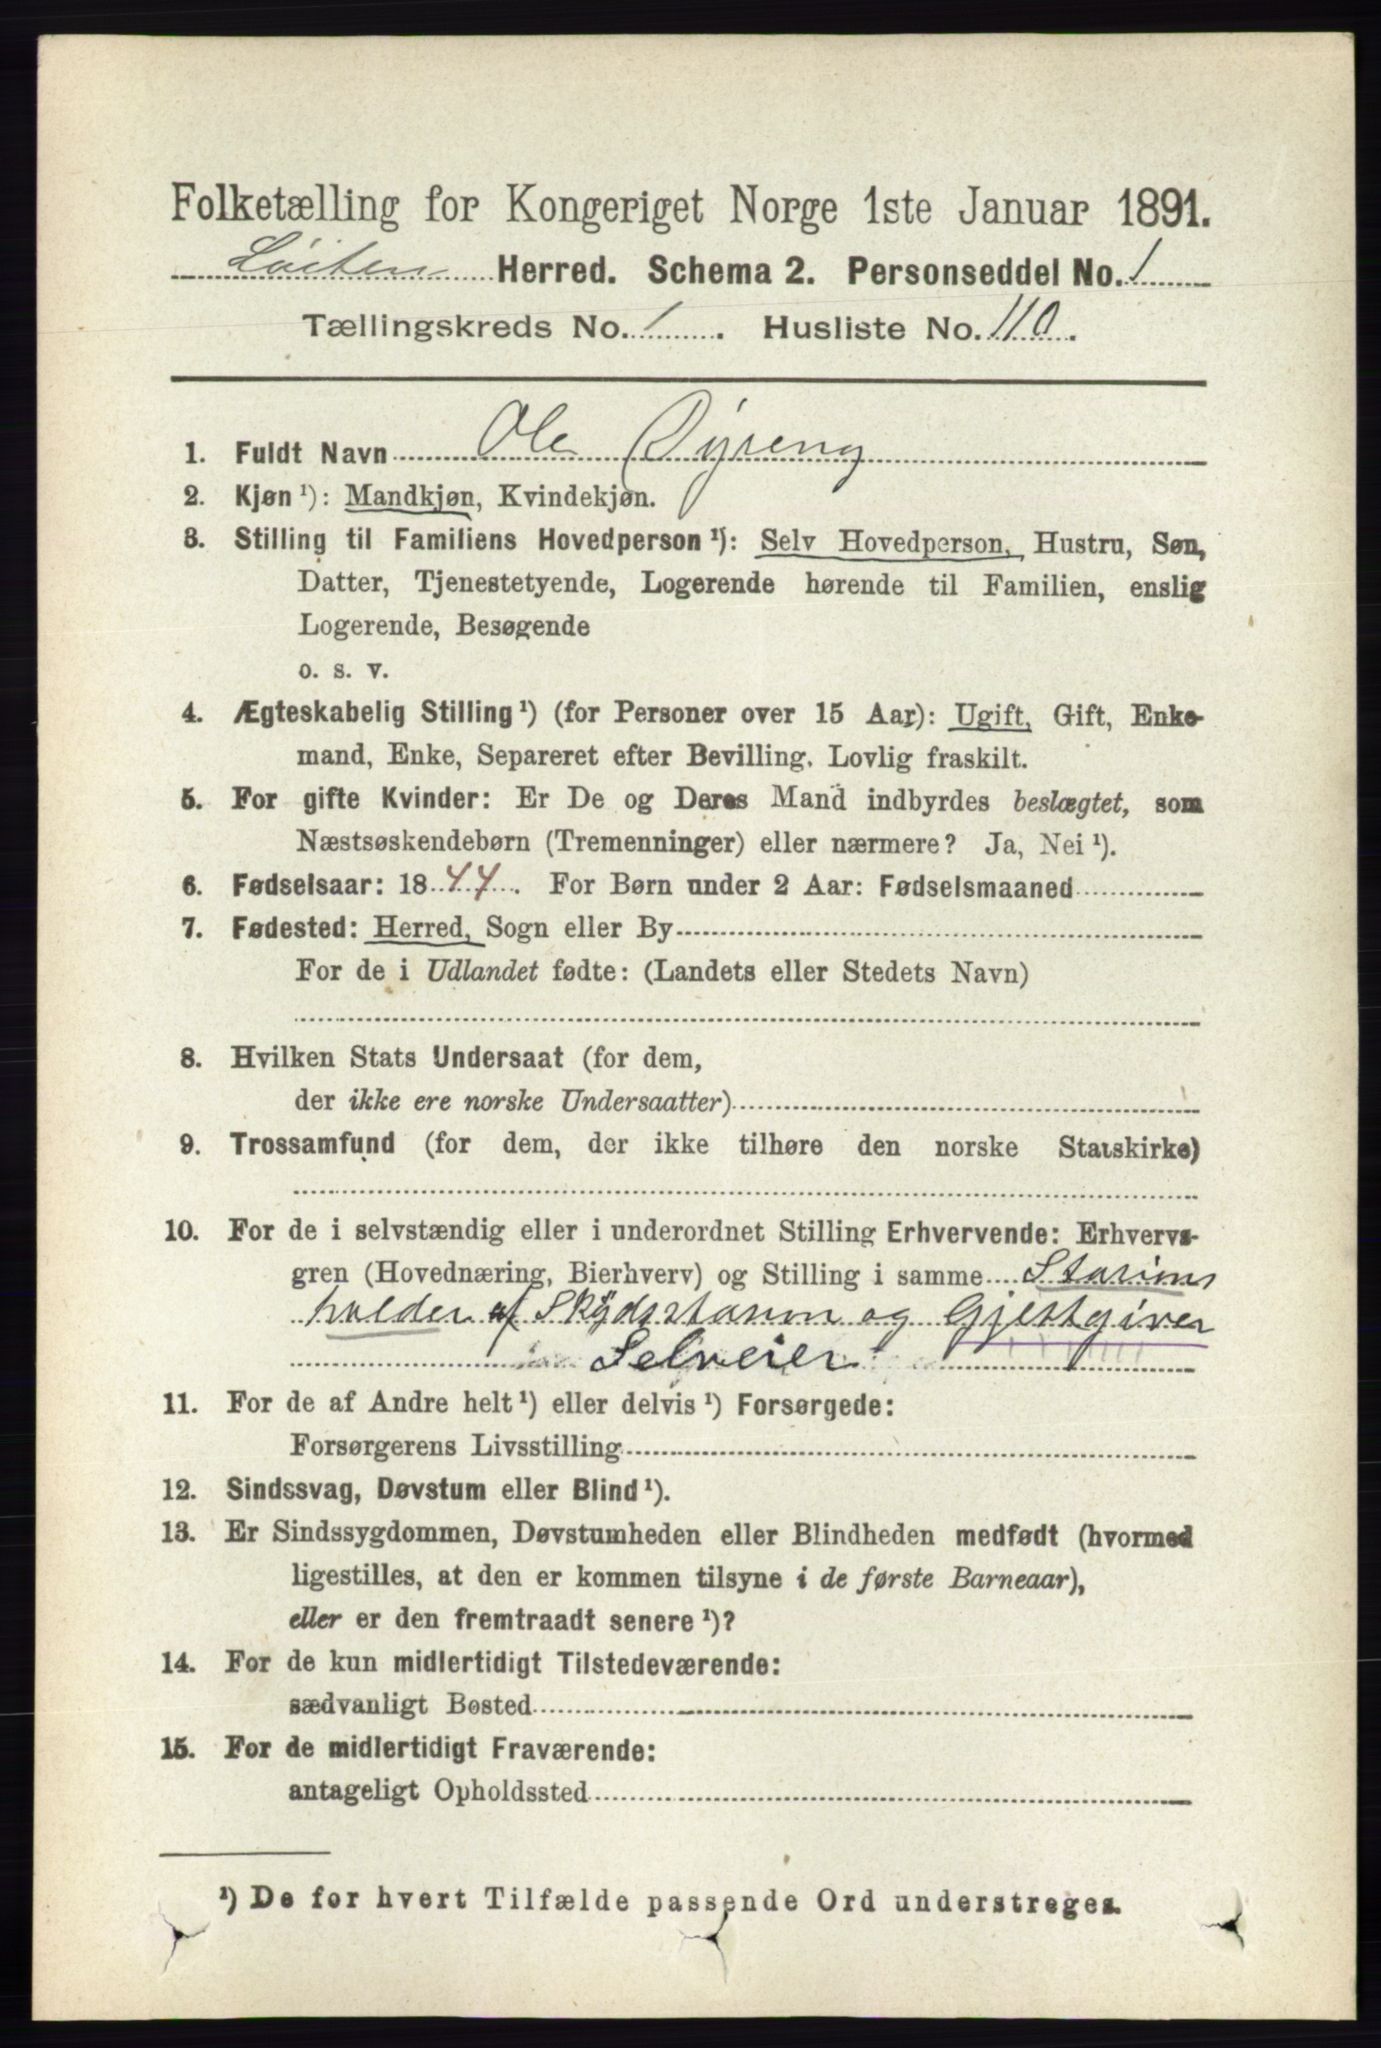 Folketælling for Kongeriget Norge 1ste Januar 1891.
Løiten Herred. Schema 2. Personseddel No. 1
Tællingskreds No. 1. Husliste No. 110.
1. Fuldt Navn Ole Dyreng
2. Kjøn ¹): Mandkjøn, Kvindekjøn.
3. Stilling til Familiens Hovedperson ¹): Selv Hovedperson, Hustru, Søn,
Datter, Tjenestetyende, Logerende hørende til Familien, enslig
Logerende, Besøgende
o. s. v.
4. Ægteskabelig Stilling ¹) (for Personer over 15 Aar): Ugift, Gift, Enke-
mand, Enke, Separeret efter Bevilling. Lovlig fraskilt.
5. For gifte Kvinder: Er De og Deres Mand indbyrdes beslægtet, som
Næstsøskendebørn (Tremenninger) eller nærmere? Ja, Nei ¹).
6. Fødselsaar: 1844. For Børn under 2 Aar: Fødselsmaaned
7. Fødested: Herred, Sogn eller By
For de i Udlandet fødte: (Landets eller Stedets Navn)
8. Hvilken Stats Undersaat (for dem,
der ikke ere norske Undersaatter)
9. Trossamfund (for dem, der ikke tilhøre den norske Statskirke)
10. For de i selvstændig eller i underordnet Stilling Erhvervende: Erhvervs-
gren (Hovednæring, Bierhverv) og Stilling i samme Stasions
holder af og Gjestgiver
Selveier
11. For de af Andre helt ¹) eller delvis ¹) Forsørgede:
Forsørgerens Livsstilling
12. Sindssvag, Døvstum eller Blind ¹).
13. Er Sindssygdommen, Døvstumheden eller Blindheden medfødt (hvormed
ligestilles, at den er kommen tilsyne i de første Barneaar),
eller er den fremtraadt senere ¹)?
14. For de kun midlertidigt Tilstedeværende:
sædvanligt Bosted
15. For de midlertidigt Fraværende:
antageligt Opholdssted
¹) De for hvert Tilfælde passende Ord understreges.